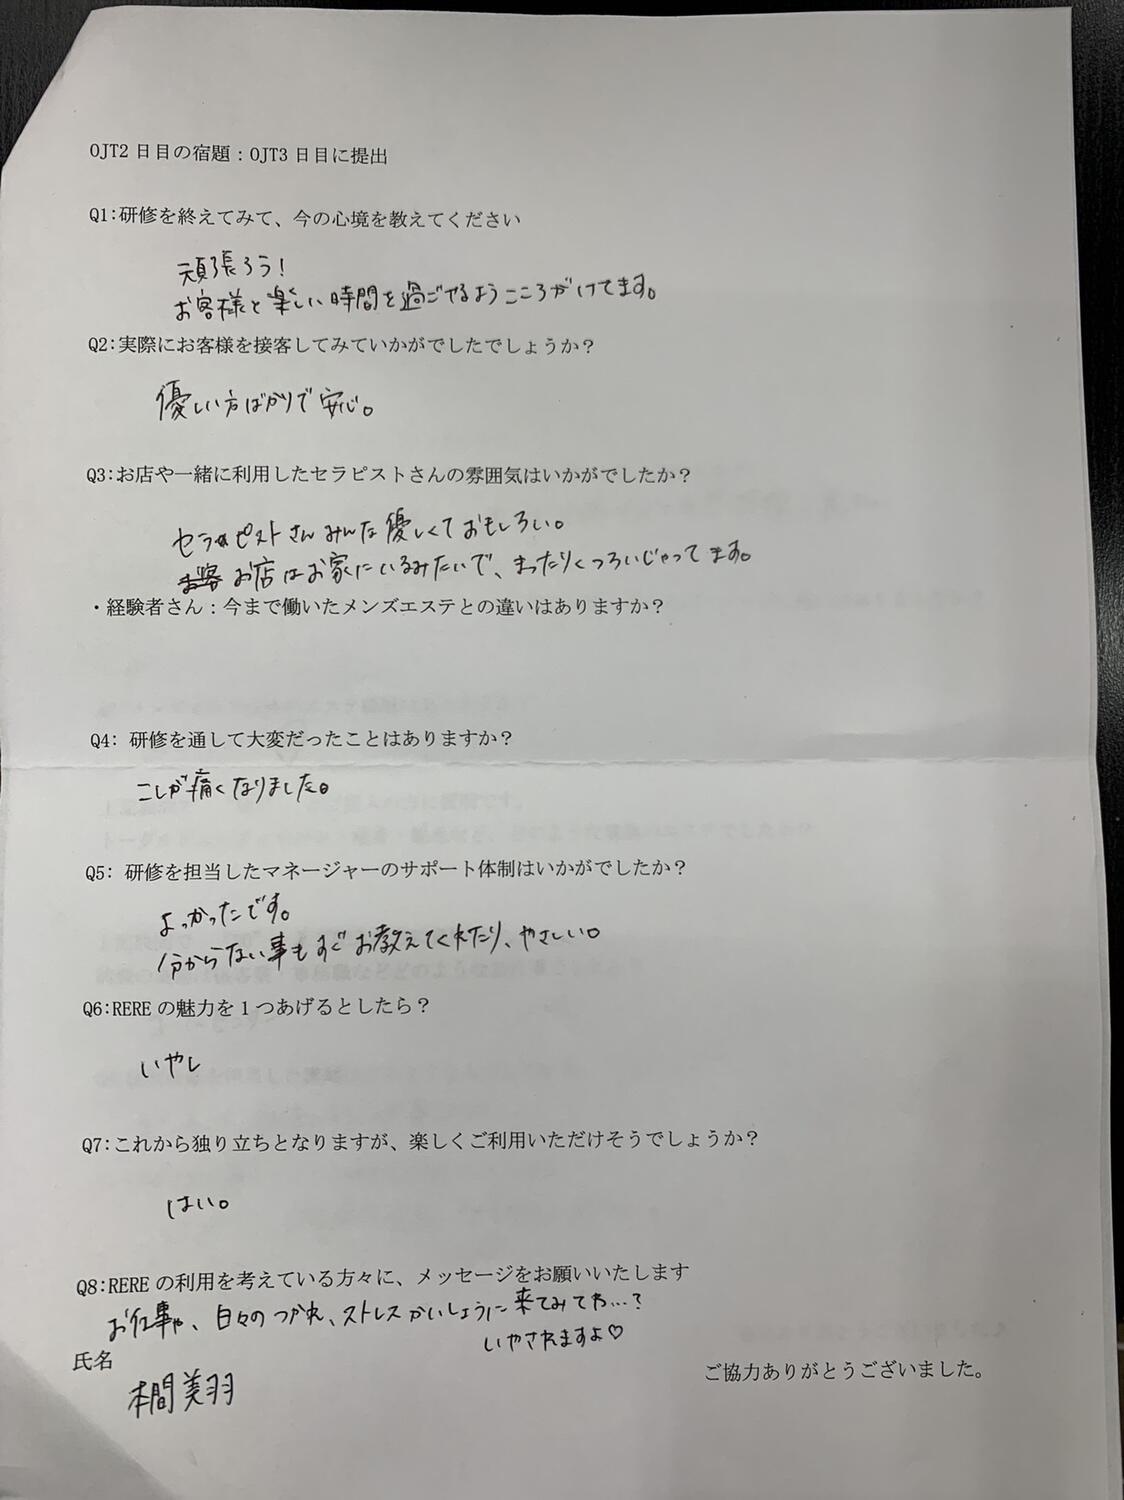 OJT2日目の宿題：OJT3日目に提出
Q1:研修を終えてみて、今の心境を教えてください
頑張ろう！
お客様と楽しい時間を過ごせるようこころがけてます。
Q2:実際にお客様を接客してみていかがでしたでしょうか？
優しい方ばかりで安心。
Q3:お店や一緒に利用したセラピストさんの雰囲気はいかがでしたか？
セラピストさんみんな優しくておもしろい。
お店はお家にいるみたいで、まったりくつろいじゃってます。
・経験者さん：今まで働いたメンズエステとの違いはありますか？
Q4: 研修を通して大変だったことはありますか？
こしが痛くなりました。
Q5: 研修を担当したマネージャーのサポート体制はいかがでしたか？
よかったです。
分からない事もすぐお教えてくれたり、やさしい。
Q6:REREの魅力を1つあげるとしたら？
いやし
Q7:これから独り立ちとなりますが、楽しくご利用いただけそうでしょうか？
はい。
Q8:REREの利用を考えている方々に、メッセージをお願いいたします
お仕事や、日々のつかれ、ストレスかいしょうに来てみてわ…？
いやされますよ♡
氏名
本間美羽
ご協力ありがとうございました。